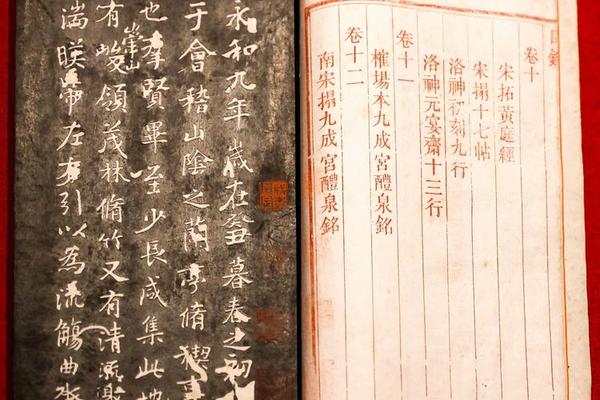 目錄
卷十
宋拓黃庭經
宋搨十七帖
洛神初刻九行
洛神元宴齋十三行
卷十一
榷場本九成宮醴泉銘
卷十二
南宋搨九成宮醴泉銘
永和九年歲在癸丑暮春之初
于會稽山陰之蘭亭脩禊事
也羣賢畢至少長咸集此地
崇山
有峻領茂林脩竹又有清流激
湍暎帶左右引以為流觴曲水